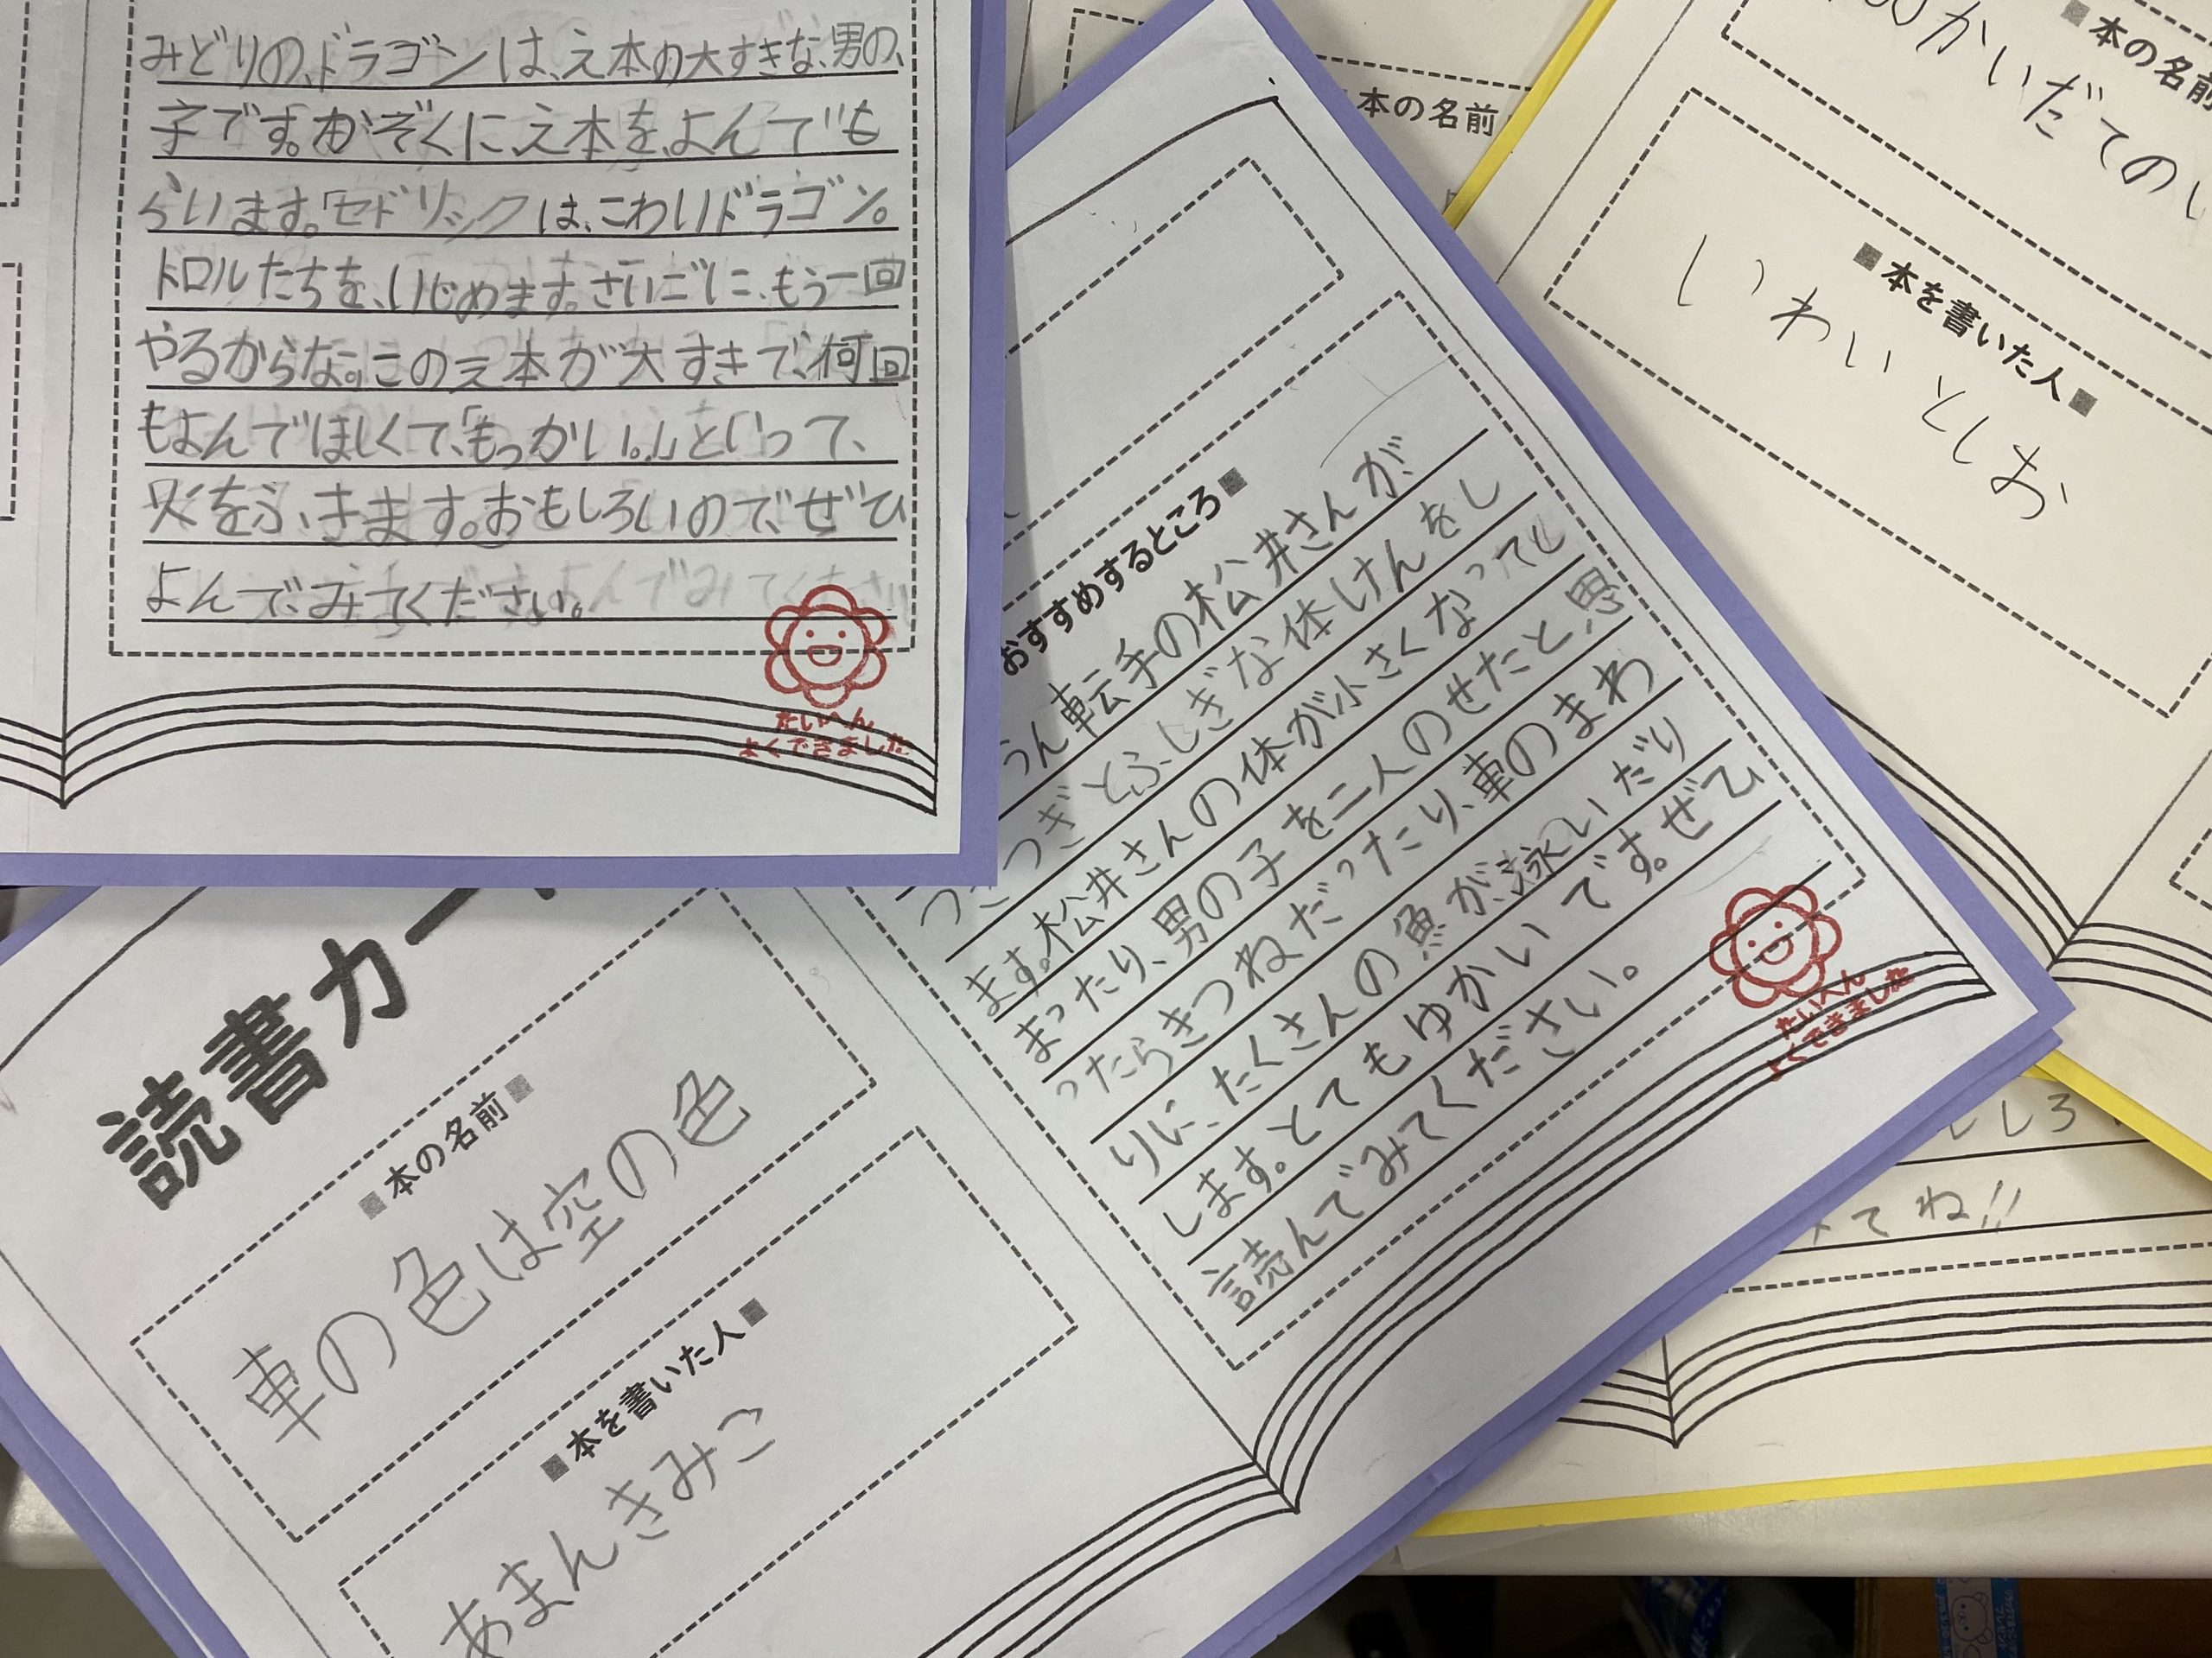 みどりの、ドラゴンは、え本の大すきな、男の、
子です。かぞくに、え本を、よんでも
らいます。「セドリックは、こわいドラゴン。
トロルたちを、いじめます。さいごに、もう一回
やるからな。このえ本が大すきで、何回
もよんでほしくて、「もっかい。」といって、
火をふ、きます。おもしろいので、ぜひ
よんで、みてください。
たいへん
よくできました
本の名前
おすすめするところ■
うん転手の松井さんが
つぎつぎとふしぎな体けんをし
ます。松井さんの体が小さくなってし
まったり、男の子を二人のせたと、思
ったらきつねだったり、車のまわ
りに、たくさんの魚が、泳いだり
します。とてもゆかいです。ぜひ
読んでみてください。
たいへん
よくできました
読書カー
■本の名前■
車の色は空の色
■本を書いた人■
あまんきみこ
■本の名前
かいだての
■本を書いた人■
いわいとしお
しろ
てね!!